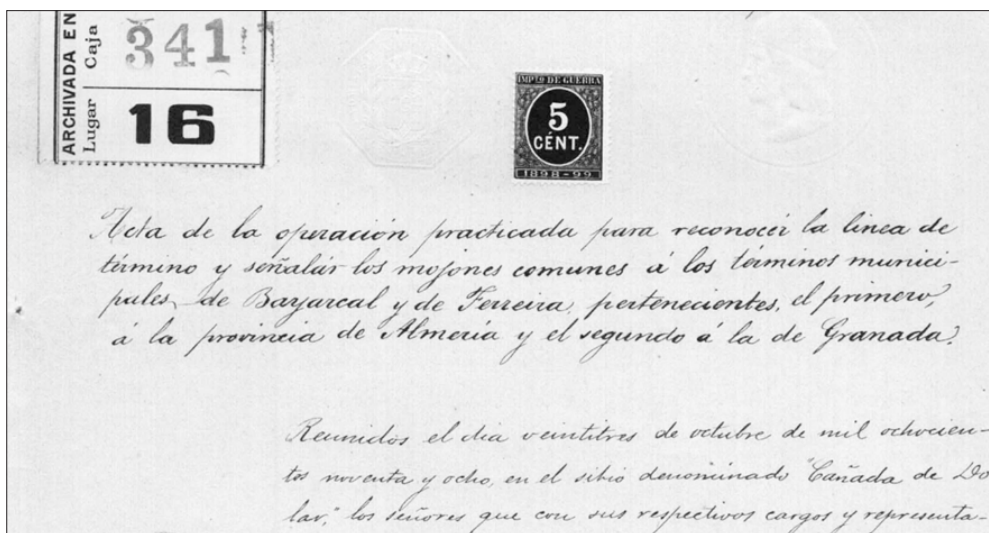 ARCHIVADA EN
Lugar Caja
341
16
IMPTO DE GUERRA
5
CÉNT.
1898-99
Acta de la operación practicada para reconocer la línea de
término y señalar los mojones comunes á los términos munici-
pales, de Bayarcal y de Ferreira, pertenecientes, el primero,
á la provincia de Almería y el segundo á la de Granada.
Reunidos el dia veintitres de octubre de mil ochocien-
tos noventa y ocho, en el sitio denominado "Cañada de Do
lar," los señores que con sus respectivos cargos y representa-